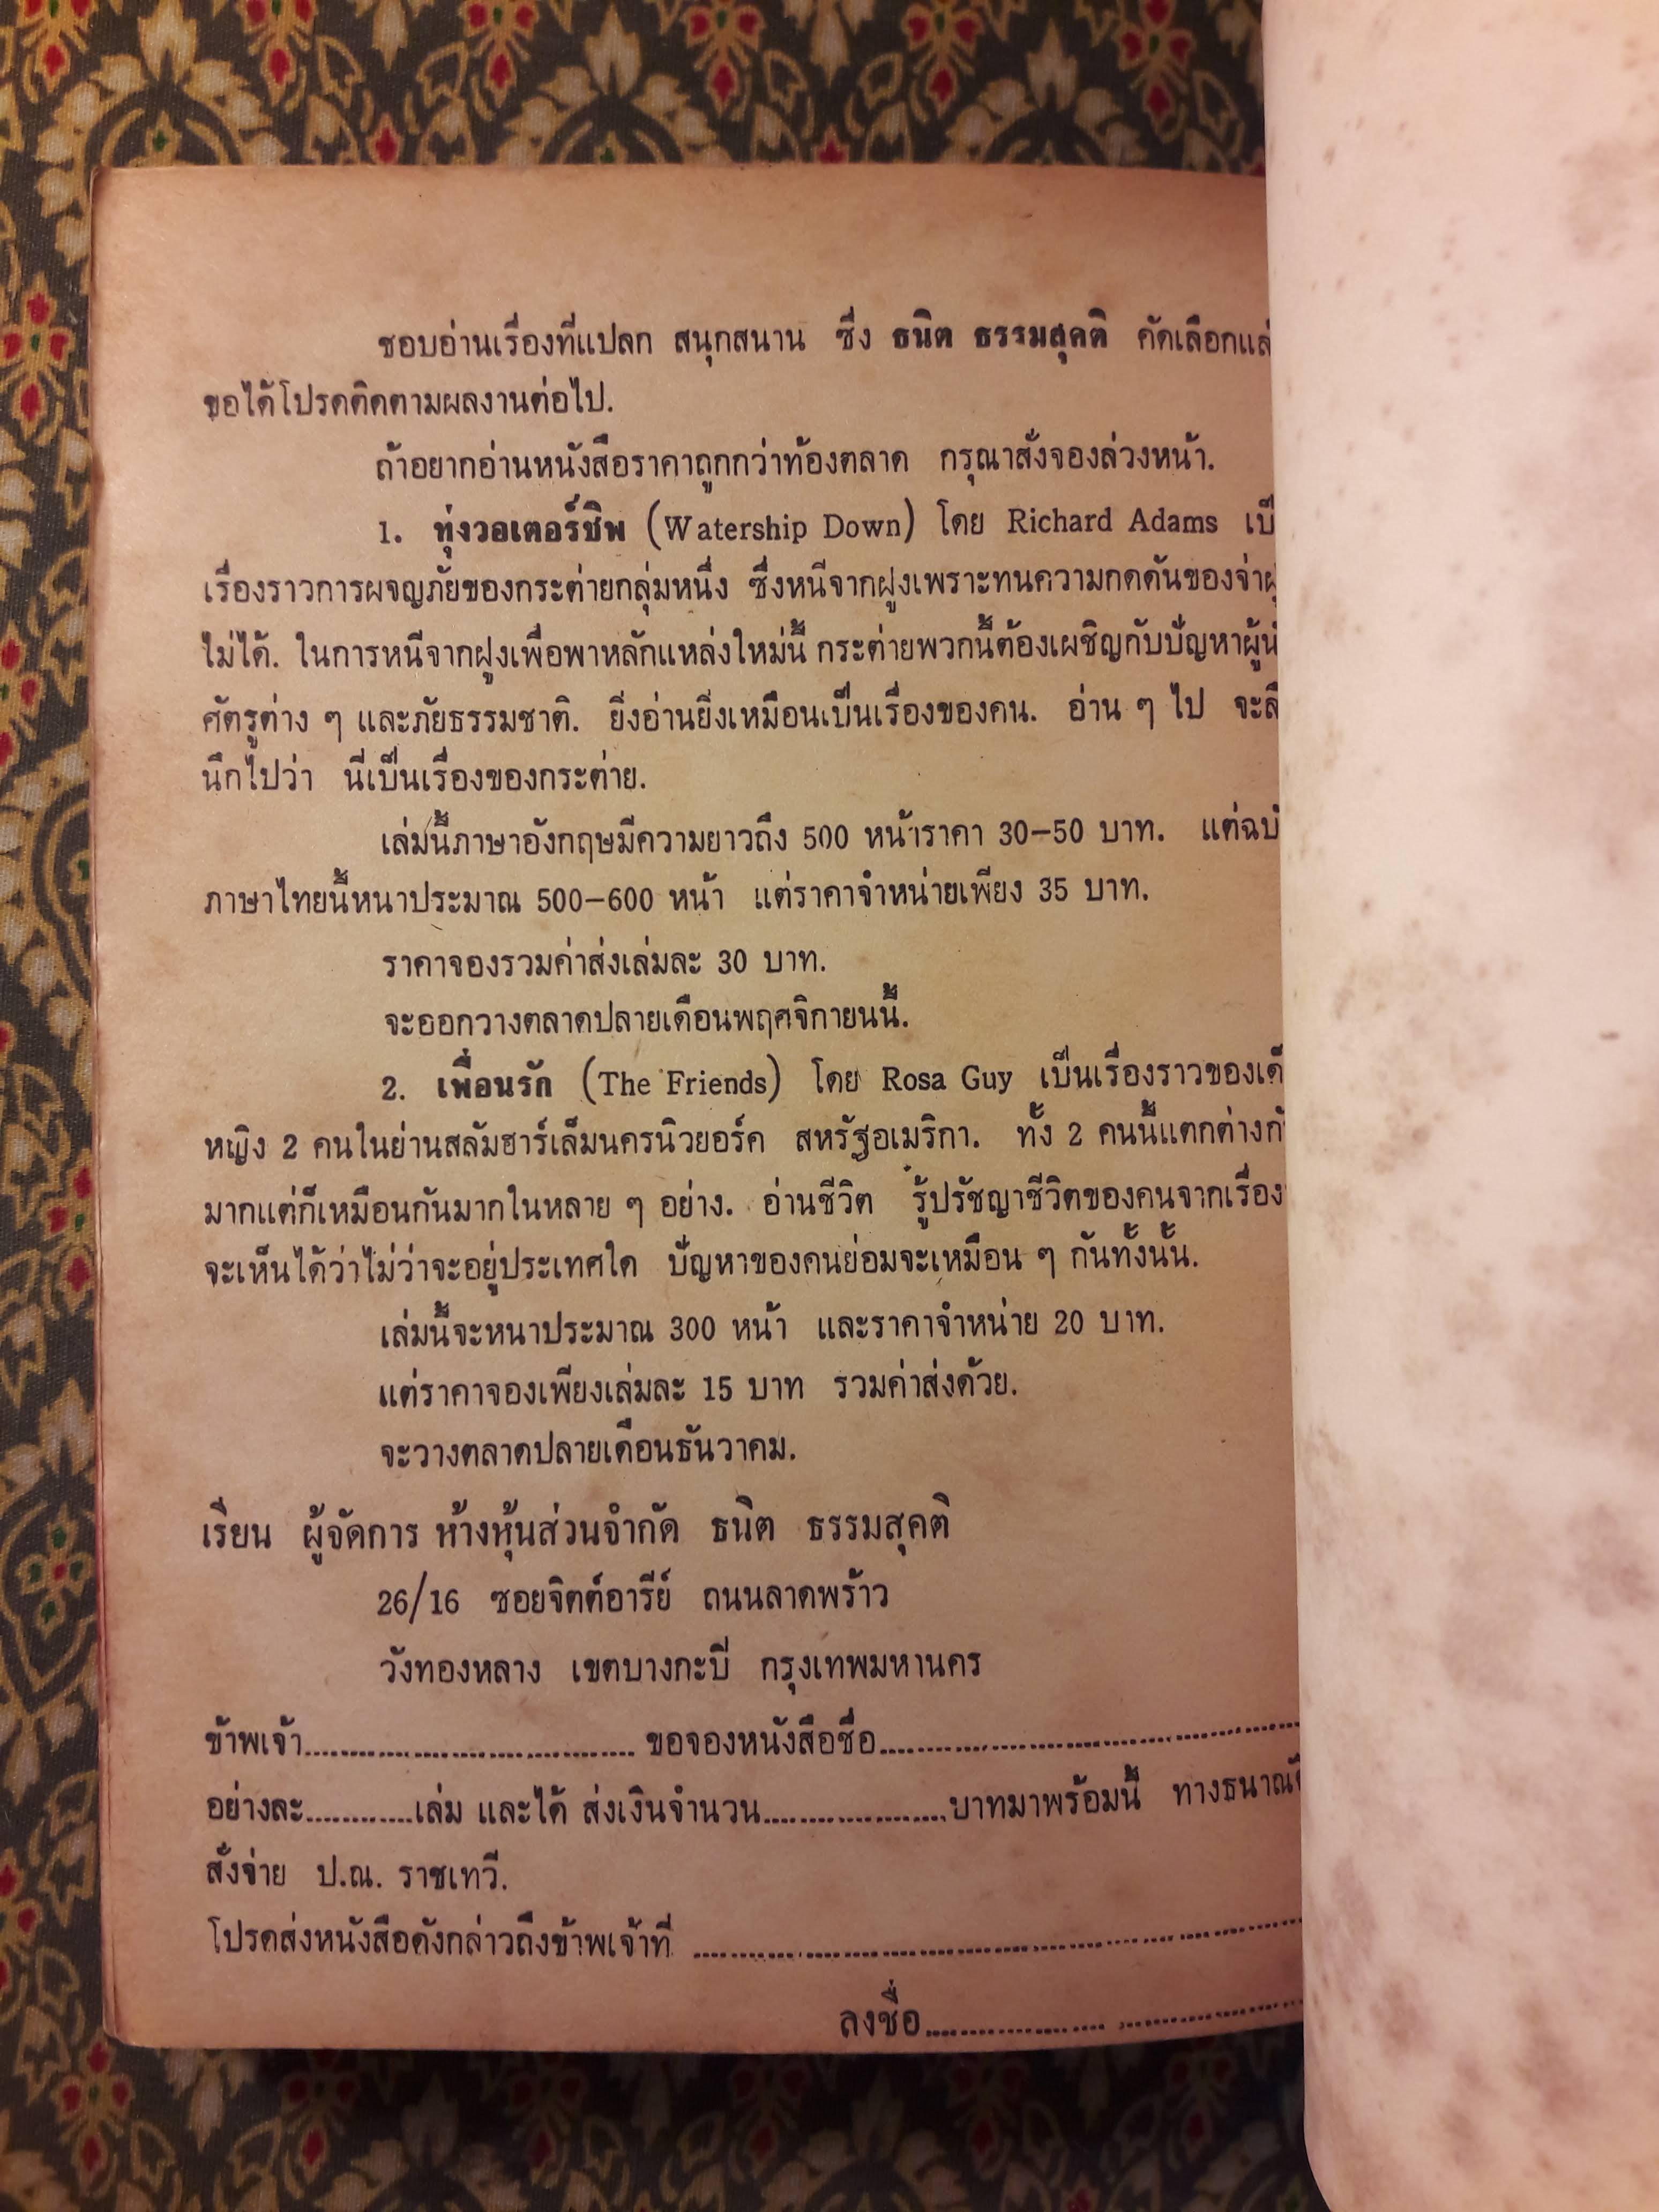 ชอบอ่านเรื่องที่แปลก สนุกสนาน ซึ่ง ธนิต ธรรมสุคติ คัดเลือก
ขอได้โปรดติดตามผลงานต่อไป.
ถ้าอยากอ่านหนังสือราคาถูกกว่าท้องตลาด กรุณาสั่งจองล่วงหน้า.
1. ทุ่งวอเตอร์ชิพ (Watership Down) โดย Richard Adams
เรื่องราวการผจญภัยของกระต่ายกลุ่มหนึ่ง ซึ่งหนีจากฝูงเพราะทนความกดดันของ
ไม่ได้. ในการหนีจากฝูงเพื่อพาหลักแหล่งใหม่นี้ กระต่ายพวกนี้ต้องเผชิญกับปัญหา
ศัตรูต่าง ๆ และภัยธรรมชาติ. ยิ่งอ่านยิ่งเหมือนเป็นเรื่องของคน. อ่าน ๆ ไป จะ
นึกไปว่า นี่เป็นเรื่องของกระต่าย.
เล่มนี้ภาษาอังกฤษมีความยาวถึง 500 หน้าราคา 30-50 บาท. แต่
ภาษาไทยนี้หนาประมาณ 500-600 หน้า แต่ราคาจำหน่ายเพียง 35 บาท.
ราคาจองรวมค่าส่งเล่มละ 30 บาท.
จะออกวางตลาดปลายเดือนพฤศจิกายนนี้.
2. เพื่อนรัก (The Friends) โดย Rosa Guy เป็นเรื่องราวของ
หญิง 2 คนในย่านสลัมฮาร์เล็มนครนิวยอร์ค สหรัฐอเมริกา. ทั้ง 2 คนนี้แตกต่าง
มากแต่ก็เหมือนกันมากในหลาย ๆ อย่าง. อ่านชีวิต รู้ปรัชญาชีวิตของคนจากเรื่อง
จะเห็นได้ว่าไม่ว่าจะอยู่ประเทศใด ปัญหาของคนย่อมจะเหมือน ๆ กันทั้งนั้น.
เล่มนี้จะหนาประมาณ 300 หน้า และราคาจำหน่าย 20 บาท.
แต่ราคาจองเพียงเล่มละ 15 บาท รวมค่าส่งด้วย.
จะวางตลาดปลายเดือนธันวาคม.
เรียน ผู้จัดการ ห้างหุ้นส่วนจำกัด ธนิต ธรรมสุคติ
26/16 ซอยจิตต์อารีย์ ถนนลาดพร้าว
วังทองหลาง เขตบางกะปี กรุงเทพมหานคร
ข้าพเจ้า.................................... ขอจองหนังสือชื่อ....................................
อย่างละ............เล่ม และได้ ส่งเงินจำนวน....................บาทมาพร้อมนี้ ทาง
สั่งจ่าย ป.ณ. ราชเทวี.
โปรดส่งหนังสือดังกล่าวถึงข้าพเจ้าที่ ....................................
ลงชื่อ....................................